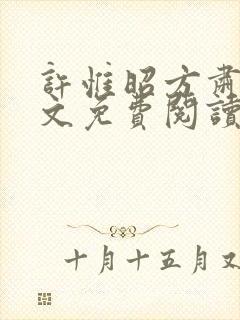 許惟昭方肅
文免費閱讀
十月十五月又